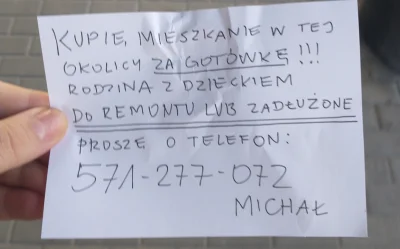 KUPIĘ MIESZKANIE W TEJ
OKOLICY ZA GOTÓWKĘ !!!
RODZINA Z DZIECKIEM
DO REMONTU LUB ZADŁUŻONE
PROSZĘ O TELEFON:
571-277-072
MICHAŁ